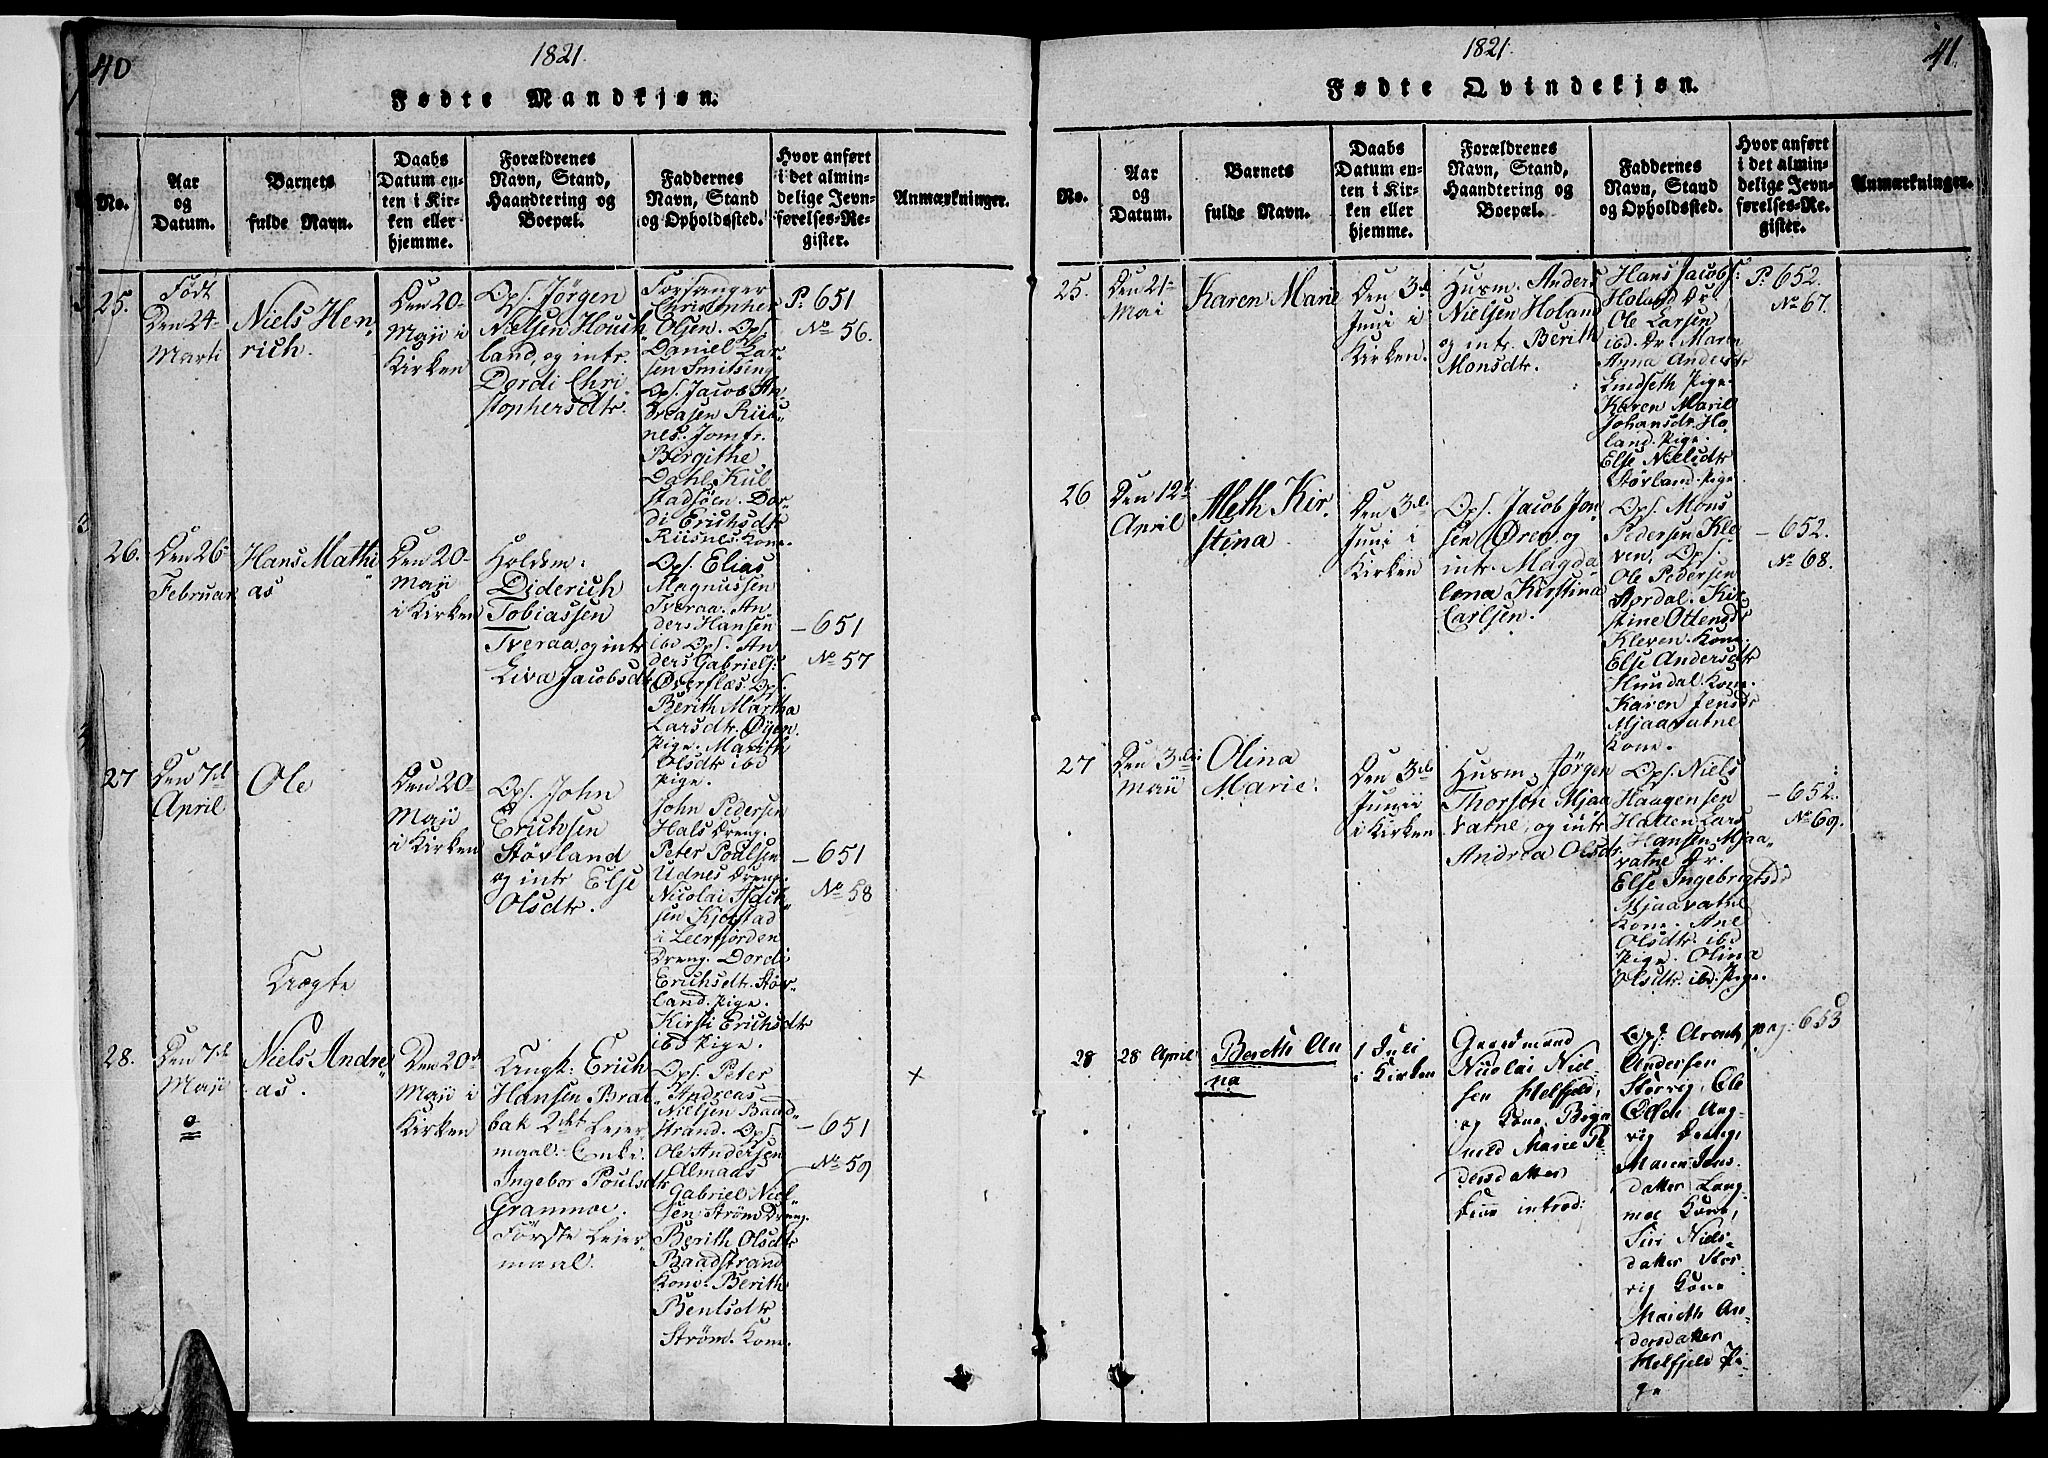 40
1821.
Fødte Mandkjøn.
No.
Aar
og
Datum.
Barnets
fulde Navn.
Daabs
Datum en-
ten i Kir-
ken eller
hjemme.
Forældrenes
Navn, Stand,
Haandtering og
Boepæl.
Faddernes
Navn, Stand
og Opholdssted.
Hvor anført
i det almin-
delige Jevn-
førelses-Re-
gister.
Anmærkninger.
25.
Født
Den 24-
Marti
Niels Hen,
rich.
Den 20-
Maji i
Kirken
Ops. Jörgen
Nielsen Housh
land, og intr.
Dordi Chri
stophersdtr.
Forsanger
Christopher
Olsen. Ops.
Daniel Lar-
sen Smitsing
Ops. Jacob An,
dreasen Riis-
nes. Jomfr.
Birgithe
Dahl Kul
stadsöen. Dor-
di Erichsdtr
Riisnes. Kone.
P: 651
No 56.
26.
Den 26-
Februar
Hans Mathi
as
Den 20-
Maji
i Kirken
Holdsm:
Diderich
Tobiassen
Tveraa, og intr
Liva Jacobsdtr
Ops. Elias
Magnussen
Tveraa. An
ders Hansen
ibd Ops. An
ders Gabriels.
Øverflæs. Ops.
Berith Martha
Larsdtr. Öyen.
Pige. Marith
Olsdtr ibd
Pige.
- 651
No 57
27
Den 7d
April
Ole
Den 20-
Maji
i Kirken
Ops. John
Erichsen
Stövland
og intr Else
Olsdtr.
John Pedersen
Hals Dreng.
Peter Poulsen
Udnes Dreng.
Nicolai Isach-
sen Kjopstad
i Leerfjorden
Dreng. Dordi
Erichsdtr. Stöv-
land. Pige.
Kirsti Erichsdtr
ibd Pige.
- 651
No 58
Uægte
28.
Den 7de
Maji
Niels Andre,
as.
Den 20d
Maji i
Kirken
Ungk: Erich
Hansen Brat
bak 2det Leier
maal. Enke.
Ingebor Poulsdtr
Grammoe.
Förste Leier
maal.
Ops. Peter
Andreas
Nielsen Baad-
strand. Ops.
Ole Andersen
Almaas
Gabriel Niel-
sen Ström Dreng.
Berith Olsdtr
Baadstrand
Kone. Berith
Bentsdtr
Ström. Kone.
- 651
No 59
×
41.
1821.
Fødte Qvindekjøn.
No.
Aar
og
Datum.
Barnets
fulde Navn.
Daabs
Datum en-
ten i Kir-
ken eller
hjemme.
Forældrenes
Navn, Stand,
Haandtering og
Boepæl.
Faddernes
Navn, Stand
og Opholdssted.
Hvor anført
i det almin-
delige Jevn-
førelses-Re-
gister.
Anmærkninger.
25.
Den 21-
Mai
Karen Marie
Den 3d
Juni i
Kirken.
Husm. Anders
Nielsen Holand
og intr. Berith
Monsdtr.
Hans Jacobs.
Holand Dr.
Ole Larsen
ibd. Dr. Maren
Anna Andersdtr
Lindseth Pige.
Karen Marie
Johansdtr. Ho,
land. Pige.
Else Nielsdtr
Störland. Pige
P: 652.
No 67.
26
Den 12te
April
Meth Kir,
stina
Den 3de
Juni i
Kirken
Ops. Jacob Jon-
sen Øren, og
intr. Magda-
lena Kirstina
Carlsen.
Ops. Mons
Pedersen Kle
ven, Ops.
Ole Pedersen
Nordal. Kir,
stine Ottensdr
Kleven. Kone.
Else Andersdtr
Hundal. Kone.
Karen Jensdr
Mjaavatne
Kone.
- 652.
No 68.
27
Den 3die
Maji
Olina
Marie.
Den 3de
Junii
i Kirken
Husm. Jörgen
Thorsen Mjaa
vatne, og intr
Andrea Olsdtr.
Ops. Niels
Haagensen
Hatten Lars
Hansen Mjaa-
vatne Dr.
Else Ingebrigtsd
Mjaavatne
Kone. Ane
Olsdtr. ibd
Pige. Olina
Olsdtr. ibd. Pige.
- 652.
No 69.
28
28 April
Bereth An
na
1 Juli
i Kirken
Gaardmand
Nicolai Niel-
sen Helfjeld,
og Kone Ragn
hild Marie Pe
dersdatter
Kone introd:
Ops: Arent
Andersen
Storvig, Ole
Olsen Ang-
vig Dreng,
Maren Jons
datter Lang
moe Kone,
Siri Niels-
datter Stor
vig Kone
Marith An-
dersdatter
Helfjeld Pi-
ge
pag: 653